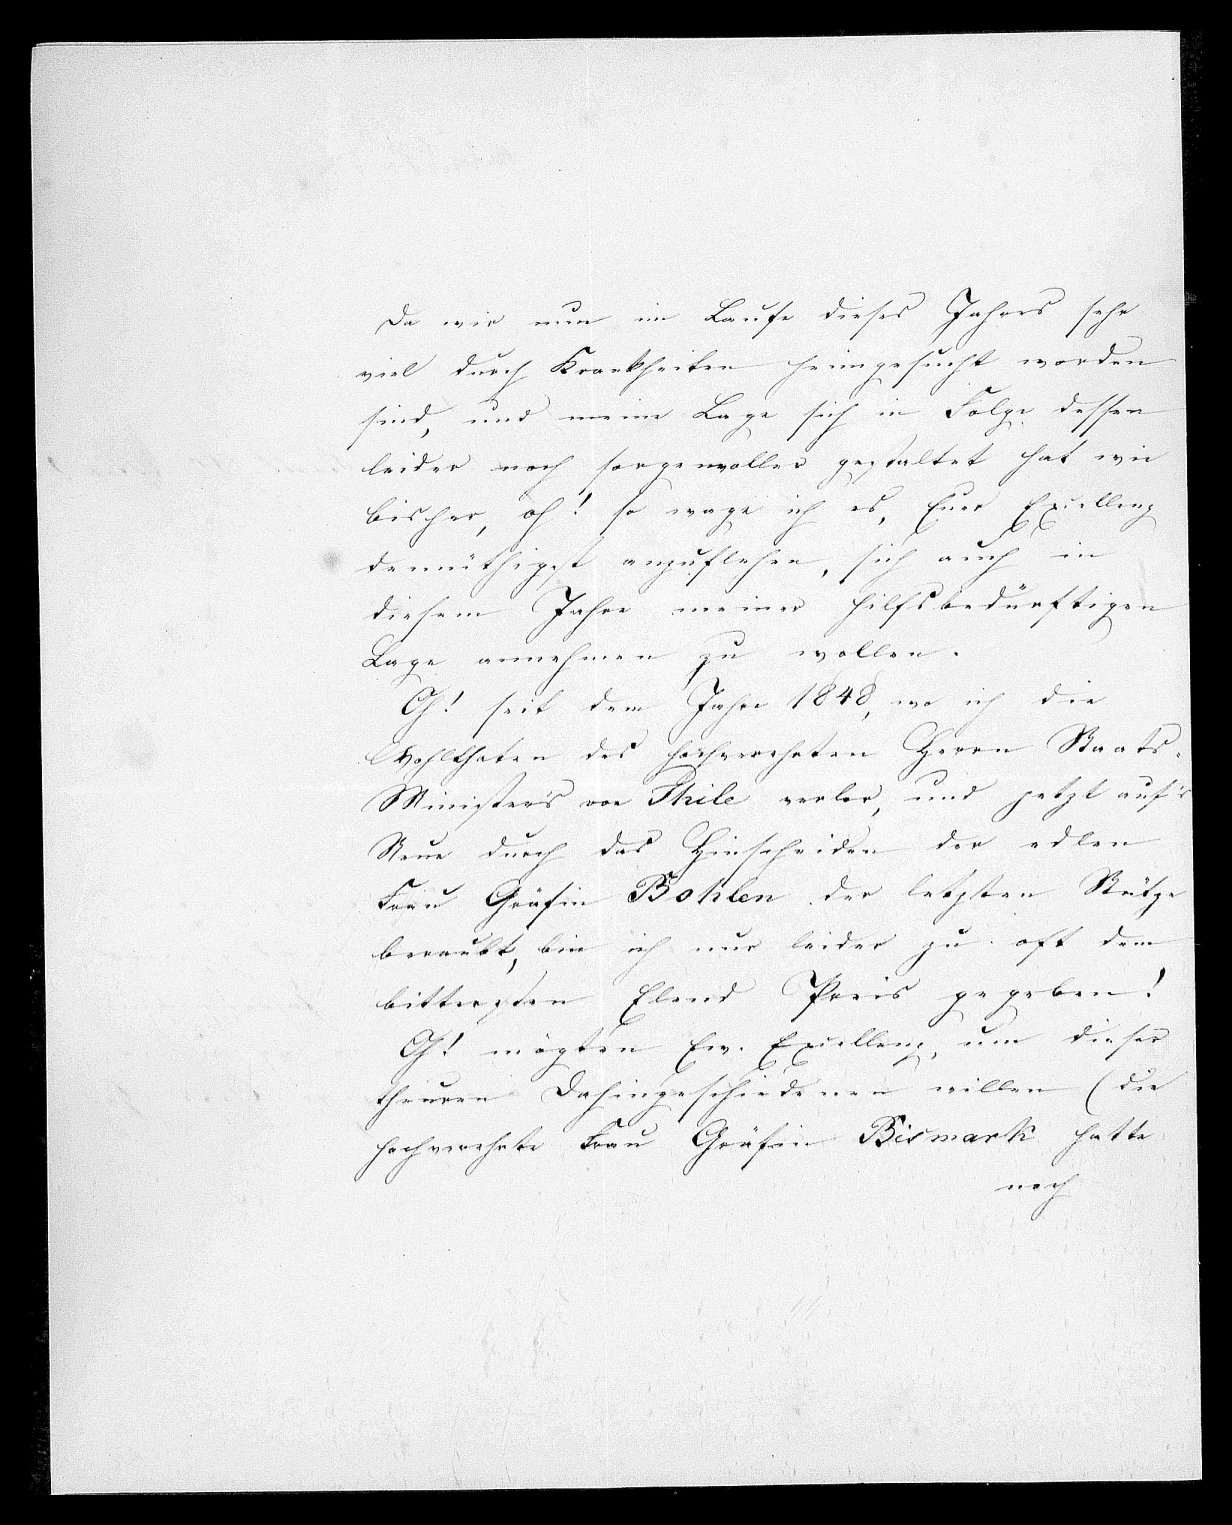 Da wir nun im Laufe dieses Jahres sehr
viel durch Krankheiten heimgesucht worden
sind, und meine Lage sich in Folge dessen
leider noch sorgenvoller gestaltet hat wie
bisher, oh! so wage ich es, Euer Excellenz
demüthigst anzuflehen, sich auch in
diesem Jahre meiner hilfsbedürftigen
Lage annehmen zu wollen.
O! seit dem Jahre 1848, wo ich die
Wohlthaten des hochverehrten Herrn Staats-
Ministers von Thile verlor, und jetzt auf's
Neue durch das Hinscheiden der edlen
Frau Gräfin Bohlen der letzten Stütze
beraubt, bin ich nur leider zu oft dem
bittersten Elend Preis gegeben!
O! mögten Ew. Excellenz, um dieser
theuren Dahingeschiedenen willen (die
hochverehrte Frau Gräfin Bismark hatte
noch